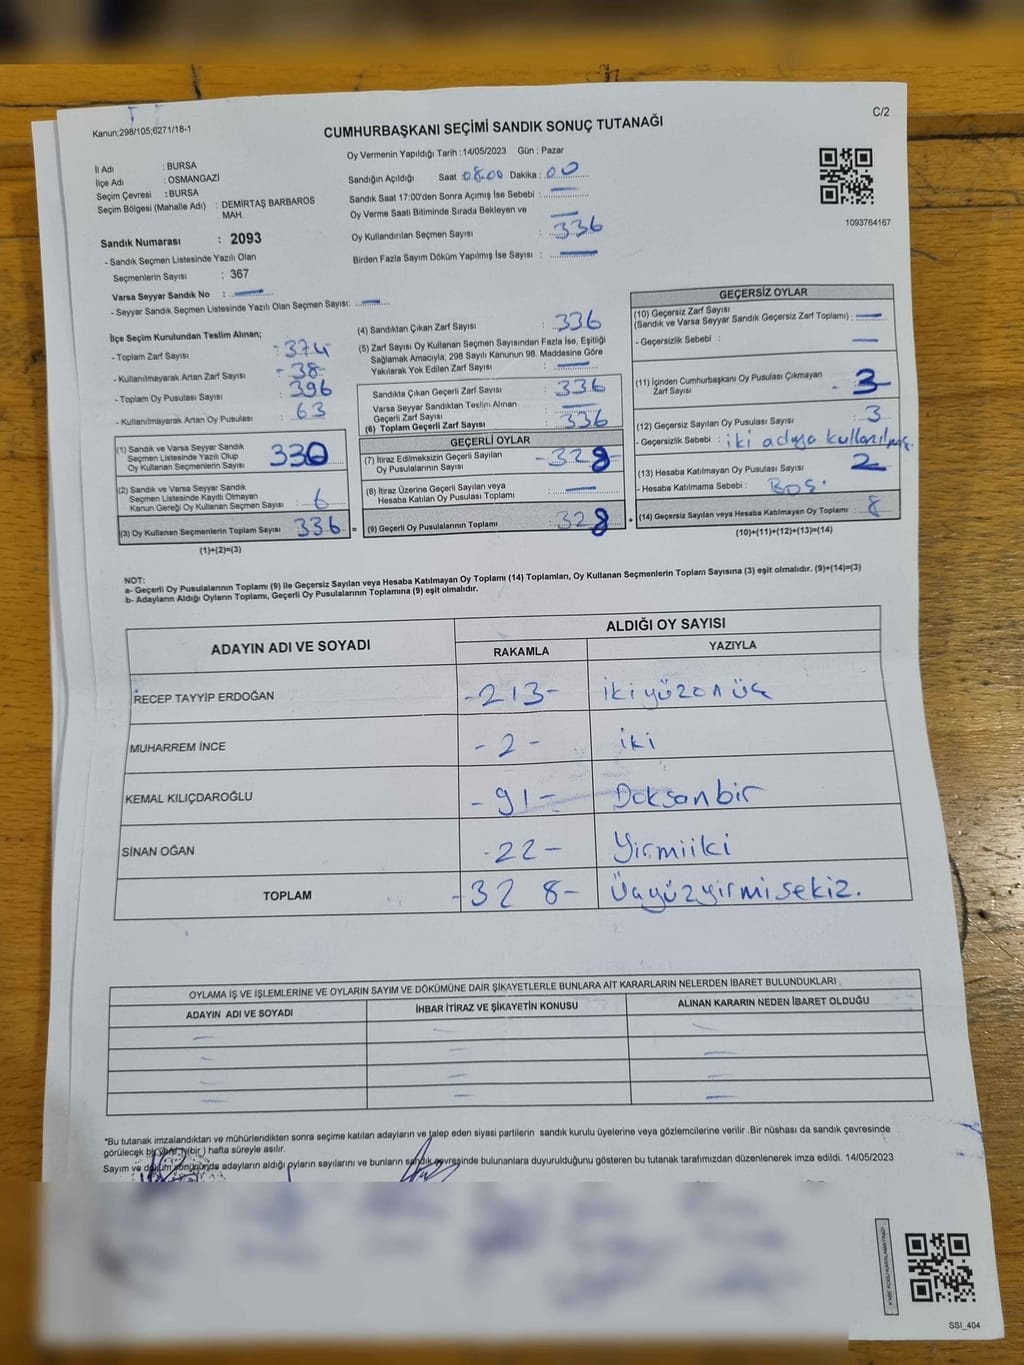 Kanun;298/105;6271/18-1
C/2
CUMHURBAŞKANI SEÇİMİ SANDIK SONUÇ TUTANAĞI
Oy Vermenin Yapıldığı Tarih :14/05/2023 Gün : Pazar
İl Adı : BURSA
İlçe Adı : OSMANGAZİ
Seçim Çevresi : BURSA
Seçim Bölgesi (Mahalle Adı) : DEMİRTAŞ BARBAROS
MAH.
Sandık Numarası : 2093
- Sandık Seçmen Listesinde Yazılı Olan
Seçmenlerin Sayısı : 367
Varsa Seyyar Sandık No : —
- Seyyar Sandık Seçmen Listesinde Yazılı Olan Seçmen Sayısı: —
Sandığın Açıldığı Saat 08.00 Dakika : 00
Sandık Saat 17:00'den Sonra Açımış İse Sebebi : —
Oy Verme Saati Bitiminde Sırada Bekleyen ve —
Oy Kullandırılan Seçmen Sayısı : 336
Birden Fazla Sayım Döküm Yapılmış İse Sayısı : —
1093764167
İlçe Seçim Kurulundan Teslim Alınan;
- Toplam Zarf Sayısı : 374
- Kullanılmayarak Artan Zarf Sayısı : 38
- Toplam Oy Pusulası Sayısı : 396
- Kullanılmayarak Artan Oy Pusulası : 63
(1) Sandık ve Varsa Seyyar Sandık
Seçmen Listesinde Yazılı Olup
Oy Kullanan Seçmenlerin Sayısı 330
(2) Sandık ve Varsa Seyyar Sandık
Seçmen Listesinde Kayıtlı Olmayan
Kanun Gereği Oy Kullanan Seçmen Sayısı : 6
(3) Oy Kullanan Seçmenlerin Toplam Sayısı 336 =
(1)+(2)=(3)
(4) Sandıktan Çıkan Zarf Sayısı : 336
(5) Zarf Sayısı Oy Kullanan Seçmen Sayısından Fazla İse, Eşitliği
Sağlamak Amacıyla; 298 Sayılı Kanunun 98. Maddesine Göre
Yakılarak Yok Edilen Zarf Sayısı : —
Sandıkta Çıkan Geçerli Zarf Sayısı : 336
Varsa Seyyar Sandıktan Teslim Alınan
Geçerli Zarf Sayısı : —
(6) Toplam Geçerli Zarf Sayısı : 336
GEÇERLİ OYLAR
(7) İtiraz Edilmeksizin Geçerli Sayılan
Oy Pusulalarının Sayısı - 328
(8) İtiraz Üzerine Geçerli Sayılan veya
Hesaba Katılan Oy Pusulası Toplamı : —
(9) Geçerli Oy Pusulalarının Toplamı : 328 +
GEÇERSİZ OYLAR
(10) Geçersiz Zarf Sayısı
(Sandık ve Varsa Seyyar Sandık Geçersiz Zarf Toplamı) : —
- Geçersizlik Sebebi : —
(11) İçinden Cumhurbaşkanı Oy Pusulası Çıkmayan
Zarf Sayısı - 3
(12) Geçersiz Sayılan Oy Pusulası Sayısı : 3
- Geçersizlik Sebebi : iki adaya
(13) Hesaba Katılmayan Oy Pusulası Sayısı 2
- Hesaba Katılmama Sebebi : Boş.
(14) Geçersiz Sayılan veya Hesaba Katılmayan Oy Toplamı : 8
(10)+(11)+(12)+(13)=(14)
NOT:
a- Geçerli Oy Pusulalarının Toplamı (9) ile Geçersiz Sayılan veya Hesaba Katılmayan Oy Toplamı (14) Toplamları, Oy Kullanan Seçmenlerin Toplam Sayısına (3) eşit olmalıdır. (9)+(14)=(3)
b- Adayların Aldığı Oyların Toplamı, Geçerli Oy Pusulalarının Toplamına (9) eşit olmalıdır.
ADAYIN ADI VE SOYADI
ALDIĞI OY SAYISI
RAKAMLA YAZIYLA
RECEP TAYYİP ERDOĞAN -213- ikiyüzonüç
MUHARREM İNCE - 2 - iki
KEMAL KILIÇDAROĞLU - 91 - Doksanbir
SİNAN OĞAN -22- Yirmiiki
TOPLAM -328- Üçyüzyirmisekiz.
OYLAMA İŞ VE İŞLEMLERİNE VE OYLARIN SAYIM VE DÖKÜMÜNE DAİR ŞİKAYETLERLE BUNLARA AİT KARARLARIN NELERDEN İBARET BULUNDUKLARI
ADAYIN ADI VE SOYADI İHBAR İTİRAZ VE ŞİKAYETİN KONUSU ALINAN KARARIN NEDEN İBARET OLDUĞU
*Bu tutanak imzalandıktan ve mühürlendikten sonra seçime katılan adayların ve talep eden siyasi partilerin sandık kurulu üyelerine veya gözlemcilerine verilir .Bir nüshası da sandık çevresinde
görülecek bir yere (bir) hafta süreyle asılır.
Sayım ve döküm sonucunda adayların aldığı oyların sayılarını ve bunların sandık çevresinde bulunanlara duyurulduğunu gösteren bu tutanak tarafımızdan düzenlenerek imza edildi. 14/05/2023
SSI_404